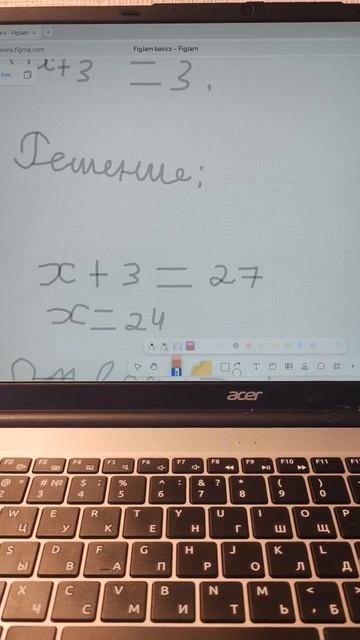 FigJam
www.figma.com
FigJam basics – FigJam
Free
x+3 = 3.
Решение;
x + 3 = 27
x = 24
T
acer
F2 F3 F4 F5 F6 F7 F8 F9 F10 F11
@ " 2 # № 3 $ ; 4 % 5 ^ : 6 & ? 7 * 8 ( 9 ) 0
W Ц E У R К T Е Y Н U Г I Ш O Щ P
S Ы D В F А G П H Р J О K Л L Д
X Ч C С V М B И N Т M Ь < , Б